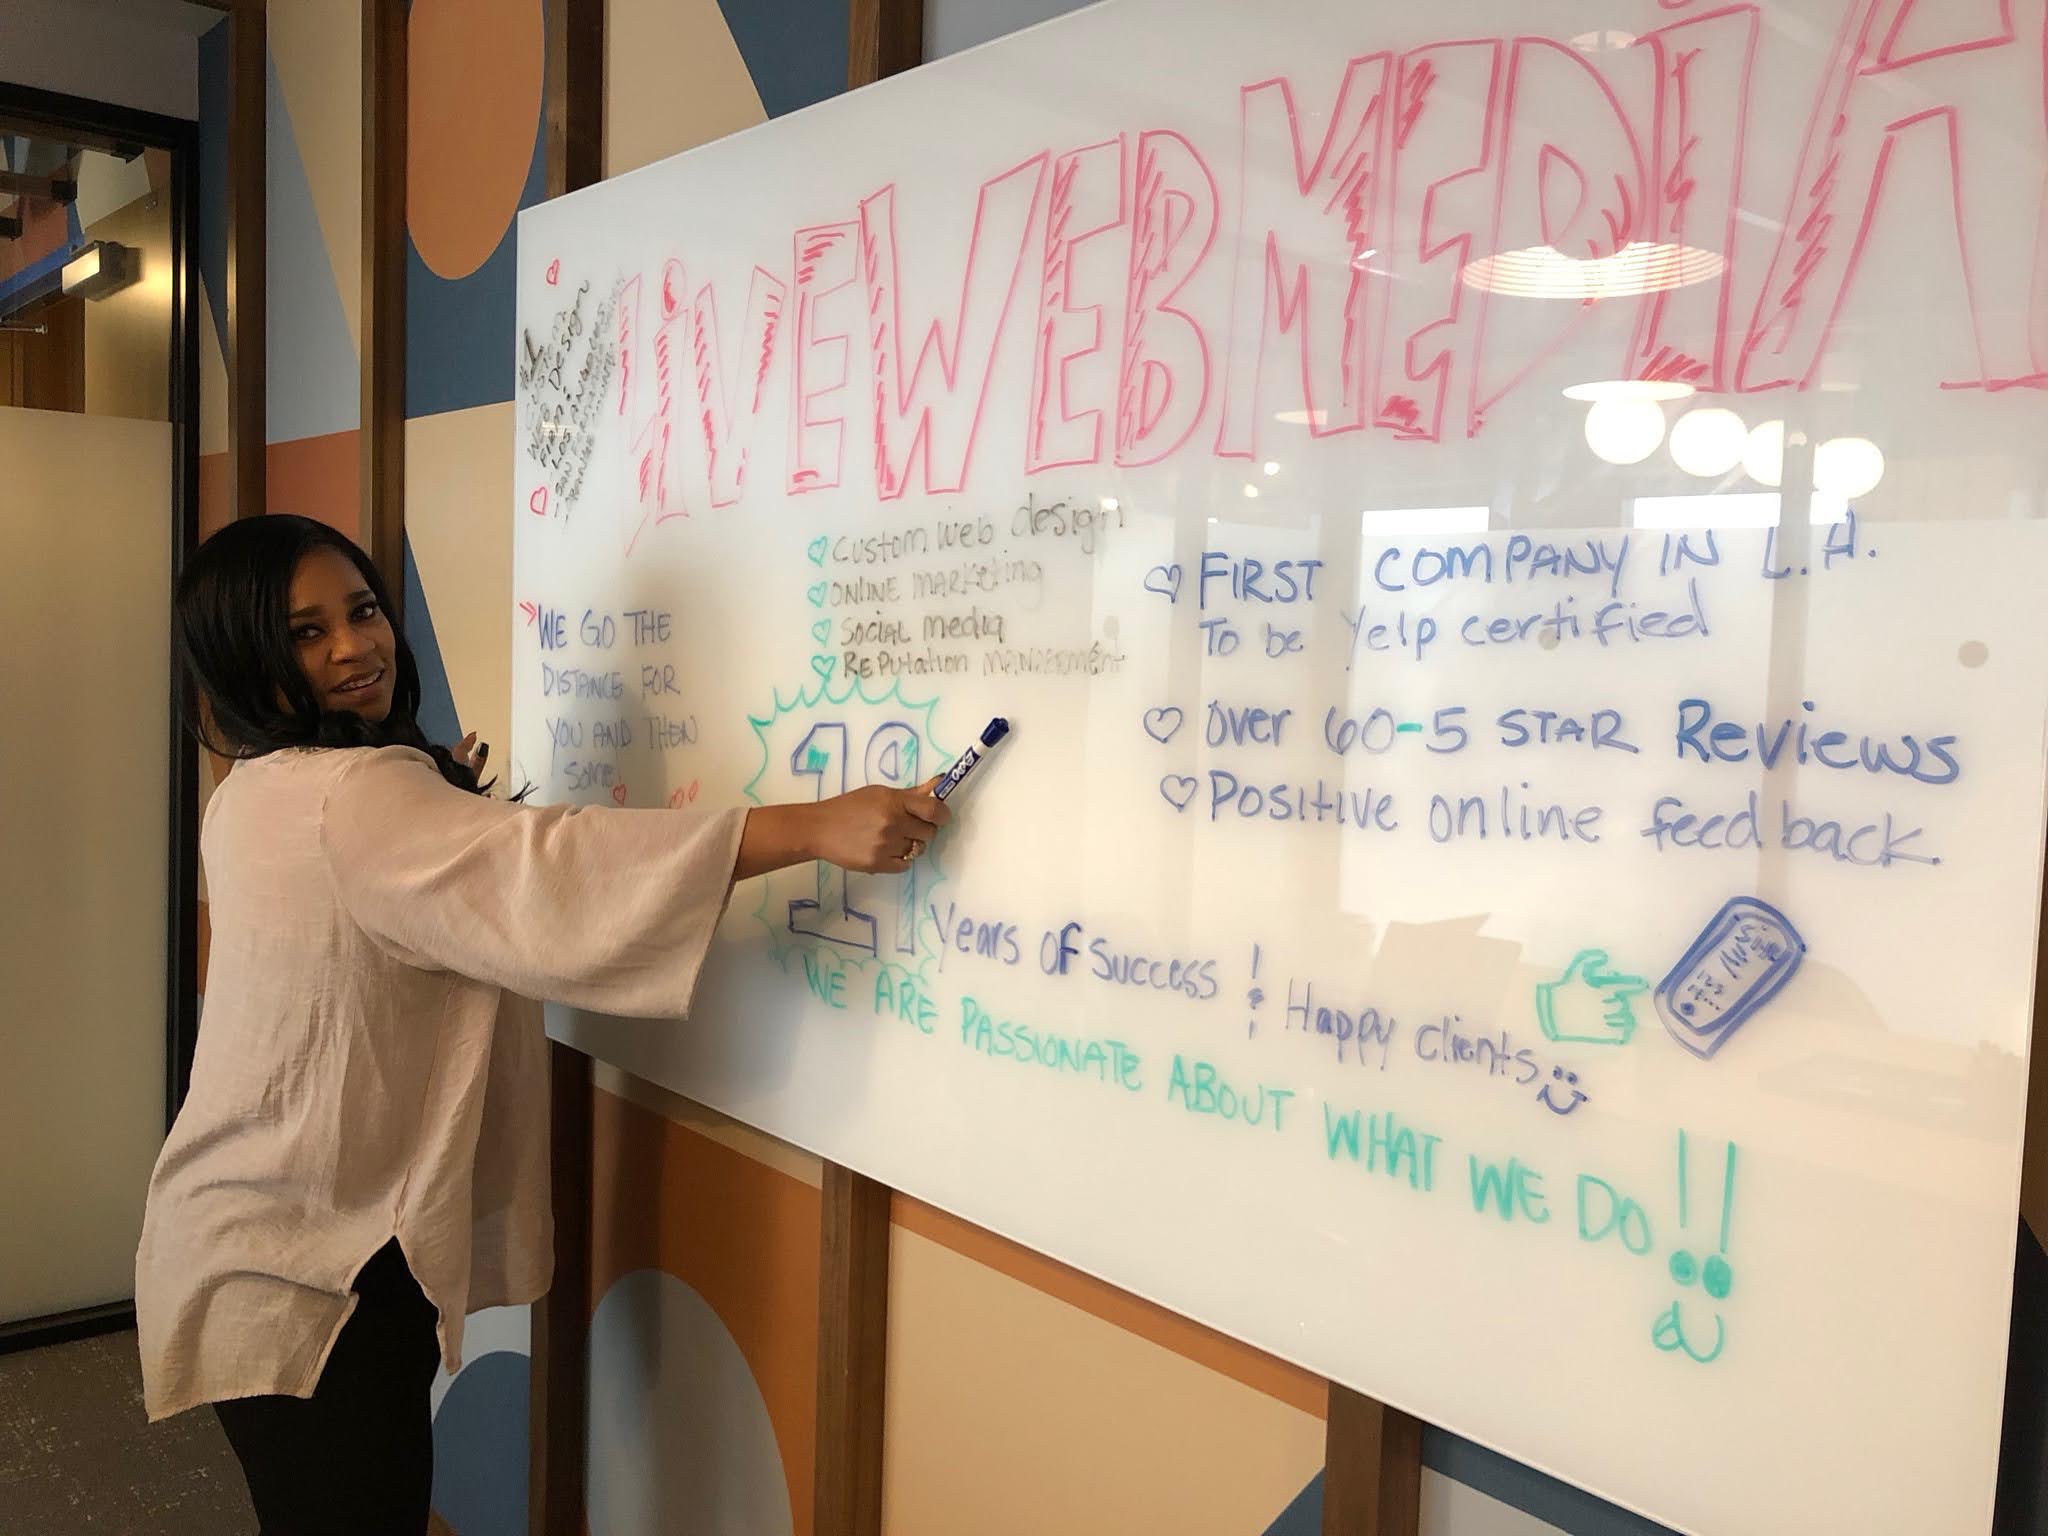 LiVEWEBMEDiA
#1
Custom
Web Design
Firm:
- LOS ANGELES
- SAN FERNANDO
WE GO THE
DISTANCE FOR
YOU AND THEN
Some!
Custom web design
ONLINE MARKEting
SOCIAL media
REPutation MANAGEMENt
FIRST COMPANY IN L.A.
To be Yelp certified
Over 60-5 STAR Reviews
Positive online feedback
19 Years Of Success! Happy Clients
WE ARE PASSIONATE ABOUT WHAT WE DO!!
EXPO